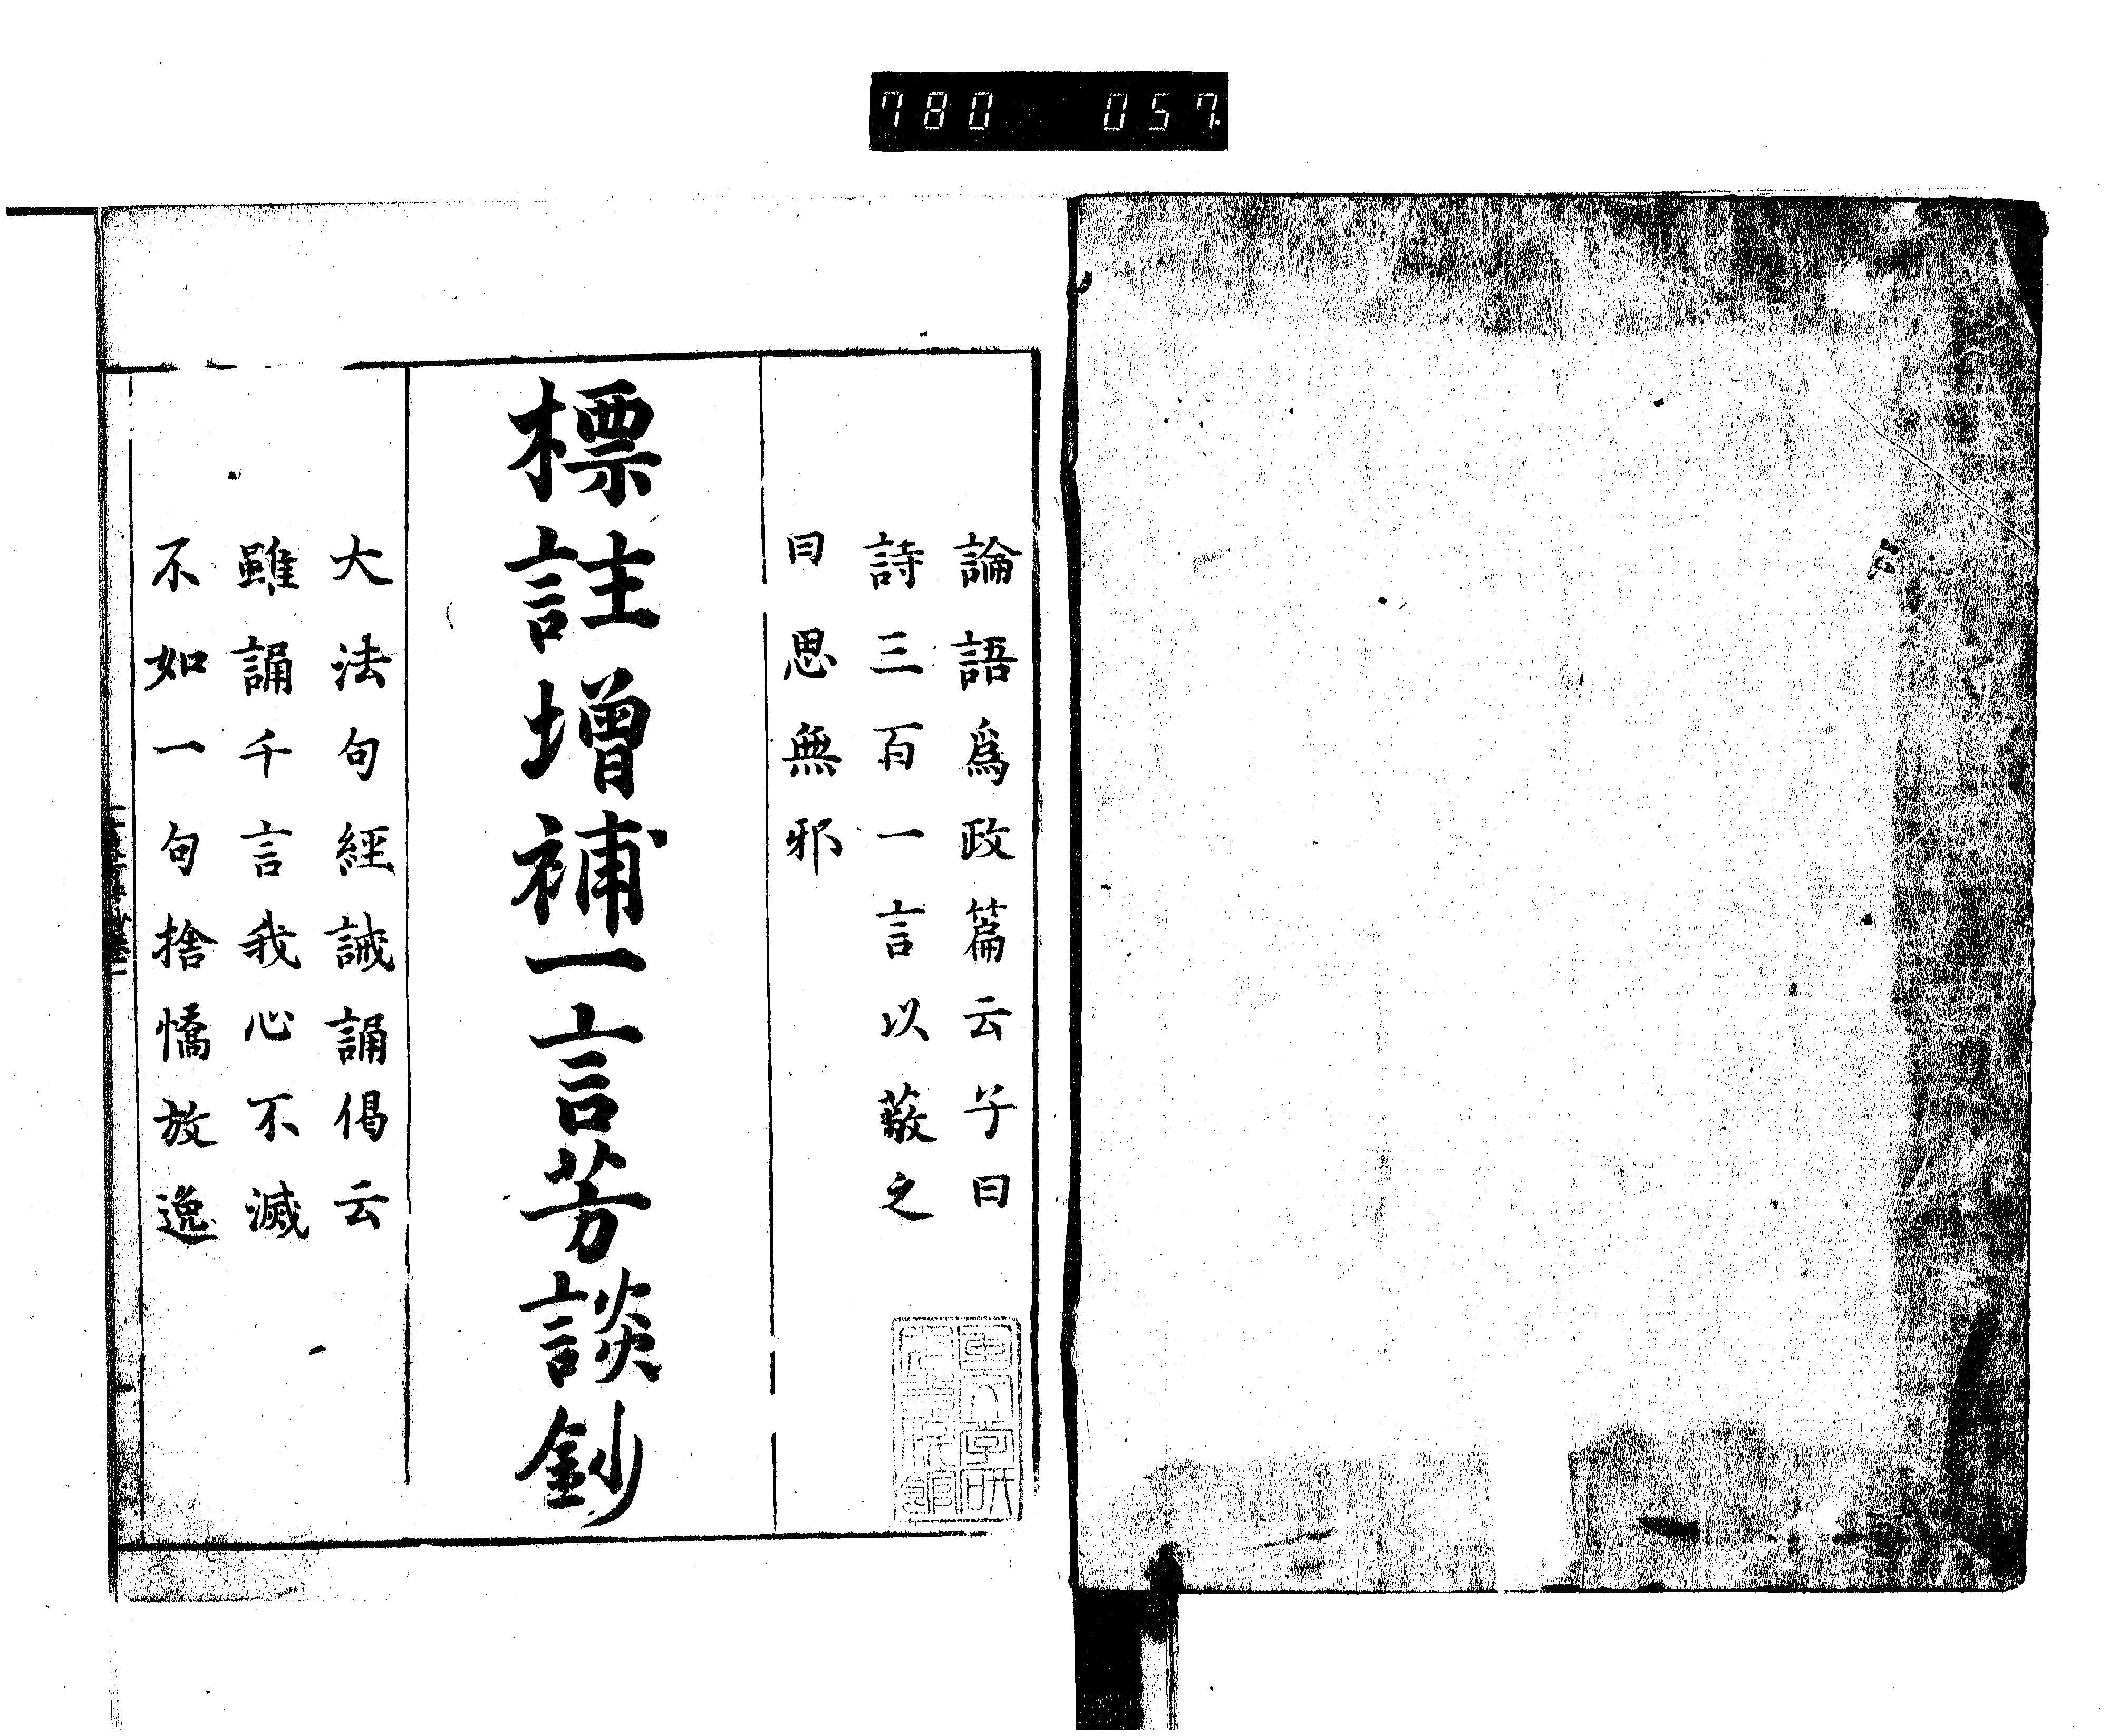 780 057
論語爲政篇云子曰
詩三百一言以蔽之
曰思無邪
標註增補一言芳談鈔
大法句經誡誦偈云
雖誦千言我心不滅
不如一句捨憍放逸